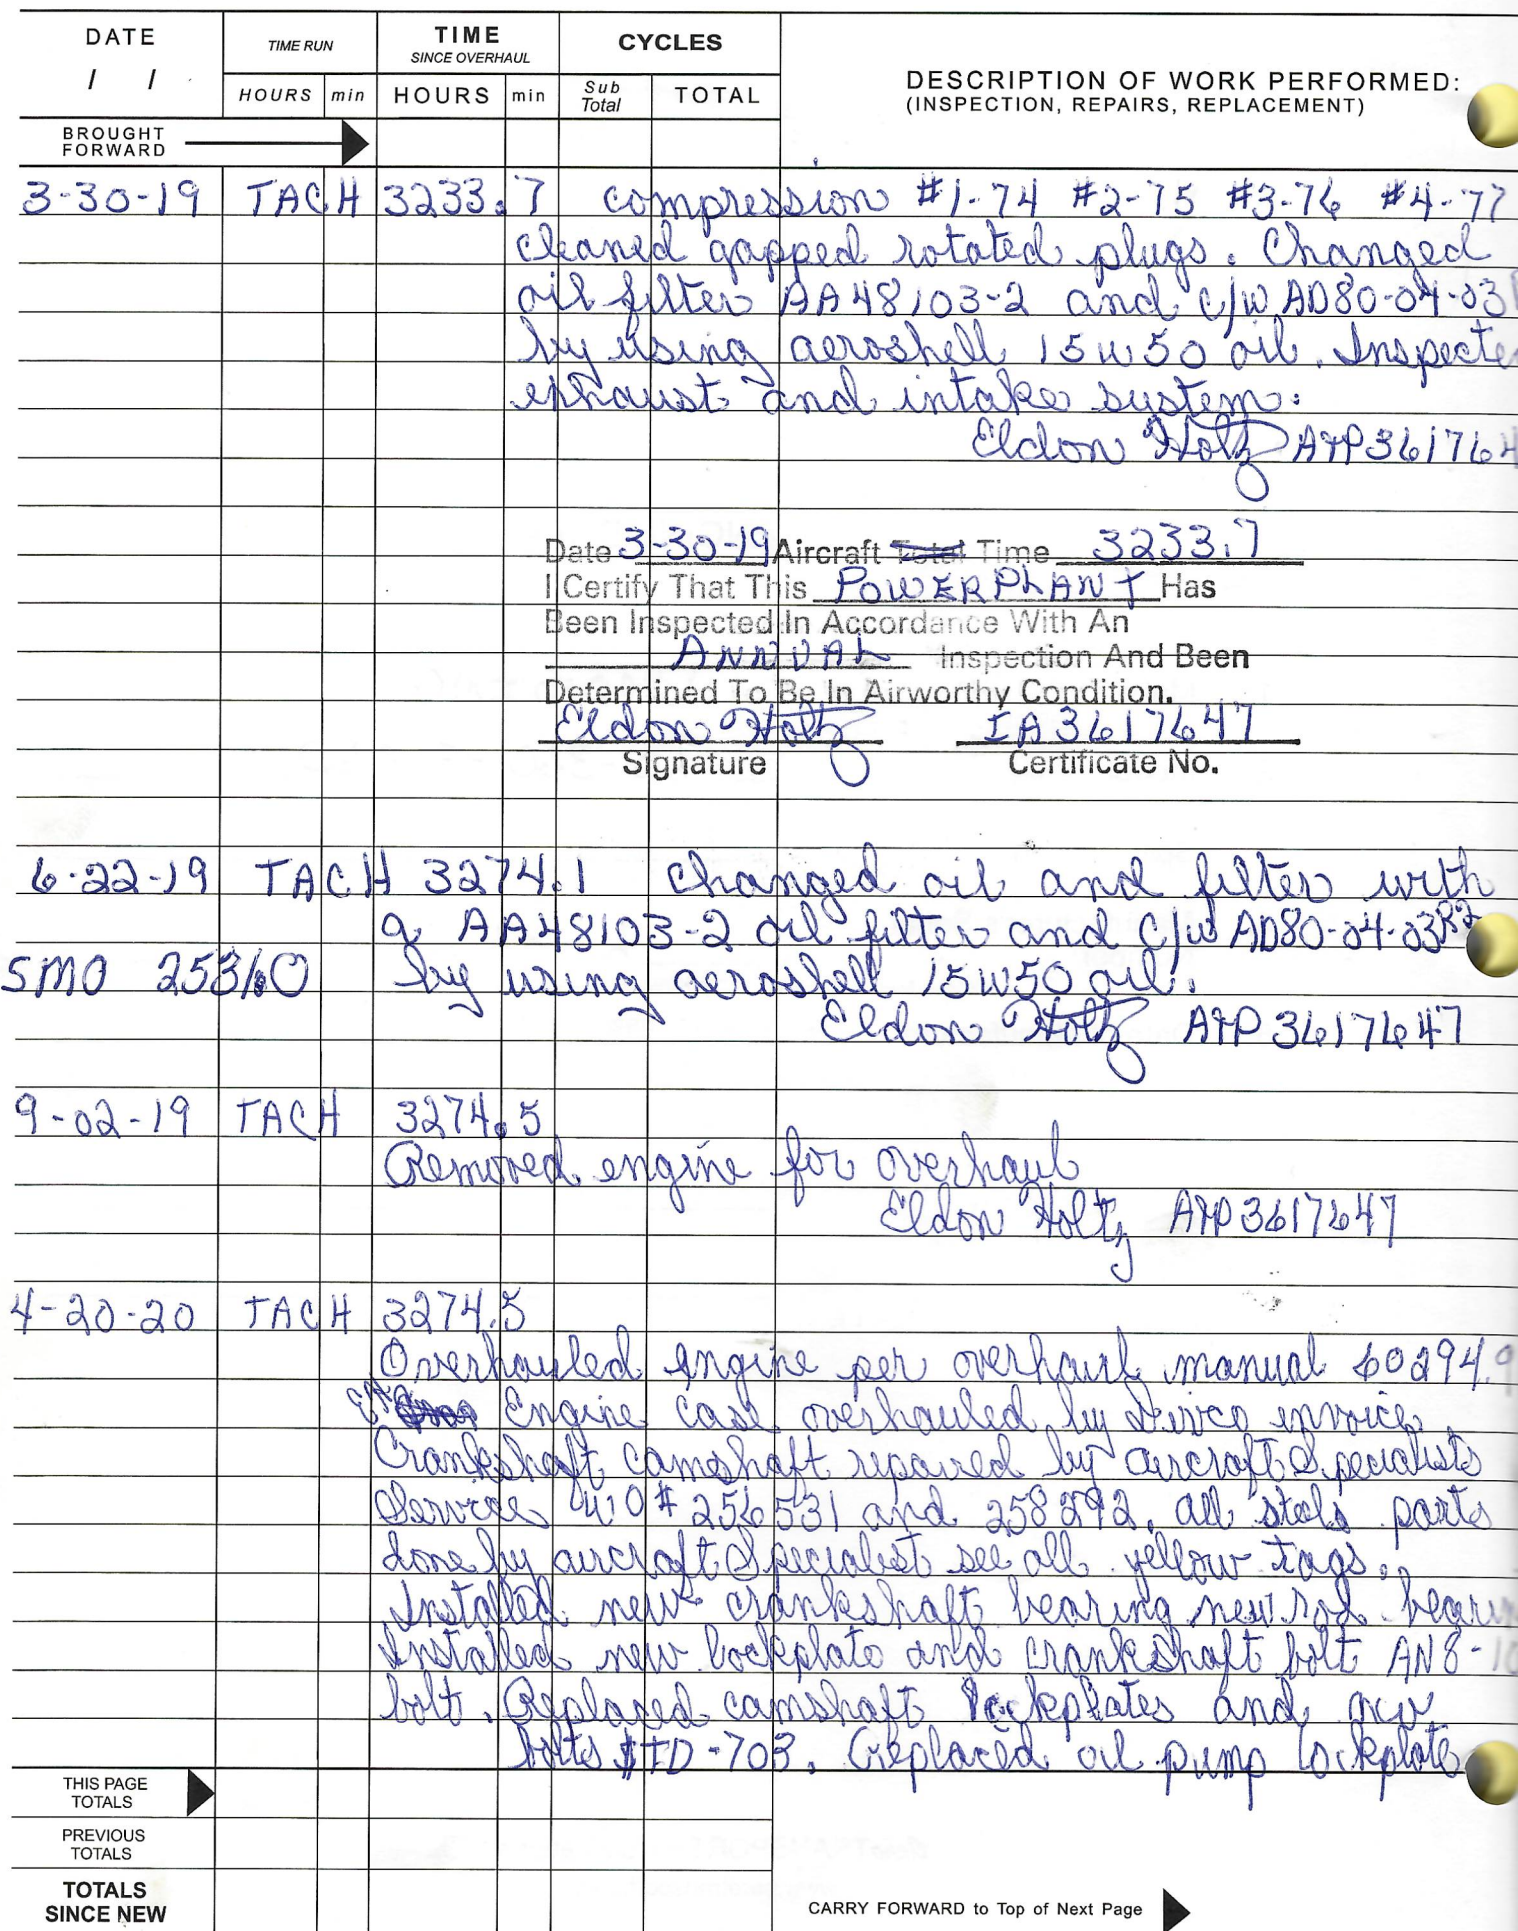 DATE
/ /
TIME RUN
TIME
SINCE OVERHAUL
CYCLES
HOURS min HOURS min Sub Total TOTAL
DESCRIPTION OF WORK PERFORMED:
(INSPECTION, REPAIRS, REPLACEMENT)
BROUGHT
FORWARD
3-30-19 TACH 3233.7 compression #1-74 #2-75 #3-76 #4-77
cleaned gapped rotated plugs. Changed
oil filter AA48103-2 and c/w AD80-04-03
by using aeroshell 15w50 oil. Inspecte
exhaust and intake system.
Eldon Holtz A&P361764
Date 3-30-19 Aircraft Total Time 3233.7
I Certify That This POWERPLANT Has
Been Inspected In Accordance With An
ANNUAL Inspection And Been
Determined To Be In Airworthy Condition.
Eldon Holtz IA3617647
Signature Certificate No.
6-22-19 TACH 3274.1 changed oil and filter with
a AA48103-2 oil filter and c/w AD80-04-03R2
SMO 2531.0 by using aeroshell 15w50 oil.
Eldon Holtz A&P3617647
9-02-19 TACH 3274.5
Removed engine for overhaul
Eldon Holtz A&P3617647
4-20-20 TACH 3274.5
Overhauled engine per overhaul manual 60294.9
Engine case overhauled by Divco invoice.
Crankshaft camshaft repaired by aircraft Specialists
Service WO# 256531 and 258292. all steels parts
done by aircraft Specialist see all yellow tags.
Installed new crankshaft bearing new rod bearin
Installed new lockplate and crankshaft bolt AN8-10
bolt. Replaced camshaft lockplates and new
bolts STD-703. Replaced oil pump lockplate
THIS PAGE
TOTALS
PREVIOUS
TOTALS
TOTALS
SINCE NEW
CARRY FORWARD to Top of Next Page